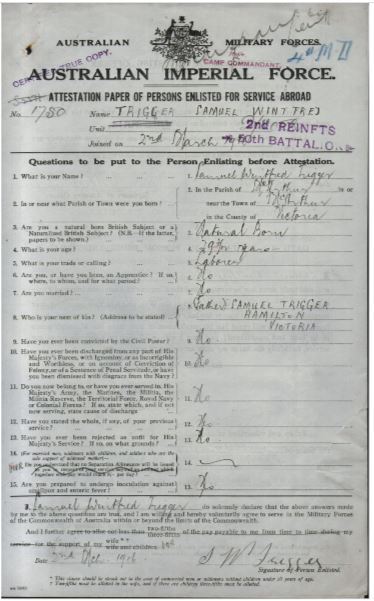 AUSTRALIAN MILITARY FORCES.
CERTIFIED TRUE COPY.
CAMP COMMANDANT,
AUSTRALIAN IMPERIAL FORCE.
ATTESTATION PAPER OF PERSONS ENLISTED FOR SERVICE ABROAD
No. 1780 Name TRIGGER SAMUEL WINTFRED
Unit 2nd REINFTS
Joined on 2nd March 50th BATTAL.
Questions to be put to the Person Enlisting before Attestation.
1. What is your Name? 1. Samuel Wintfred Trigger
2. In or near what Parish or Town were you born? 2. In the Parish of in or
near the Town of
in the County of Victoria
3. Are you a natural born British Subject or a
Naturalized British Subject? (N.B.—If the latter,
papers to be shown.) 3. Natural Born
4. What is your age? 4. years
5. What is your trade or calling? 5. Laborer
6. Are you, or have you been, an Apprentice? If so,
where, to whom, and for what period? 6. No
7. Are you married? 7. No
8. Who is your next of kin? (Address to be stated) 8. Father SAMUEL TRIGGER
HAMILTON
VICTORIA
9. Have you ever been convicted by the Civil Power? 9. No
10. Have you ever been discharged from any part of His
Majesty's Forces, with Ignominy, or as Incorrigible
and Worthless, or on account of Conviction of
Felony, or of a Sentence of Penal Servitude, or have
you been dismissed with disgrace from the Navy? 10. No
11. Do you now belong to, or have you ever served in, His
Majesty's Army, the Marines, the Militia, the
Militia Reserve, the Territorial Force, Royal Navy
or Colonial Forces? If so, state which, and if not
now serving, state cause of discharge 11. No
12. Have you stated the whole, if any, of your previous
service? 12. No
13. Have you ever been rejected as unfit for His
Majesty's Service? If so, on what grounds? 13. No
14. (For married men, widowers with children, and soldiers who are the
sole support of widowed mother)—
Do you understand that no Separation Allowance will be issued 14. —
15. Are you prepared to undergo inoculation against
smallpox and enteric fever? 15.
I, Samuel Wintfred Trigger do solemnly declare that the above answers made
by me to the above questions are true, and I am willing and hereby voluntarily agree to serve in the Military Forces
of the Commonwealth of Australia within or beyond the limits of the Commonwealth.
And I further agree to allot not less than two-fifths three-fifths of the pay payable to me from time to time during my
service for the support of my wife wife and children
Date 2nd Mch. 1916 S W Trigger
Signature of Person Enlisted.
* This clause should be struck out in the case of unmarried men or widowers without children under 18 years of age.
† Two-fifths must be allotted to the wife, and if there are children three-fifths must be allotted.